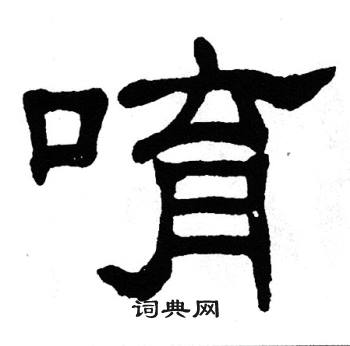 唷
词典网